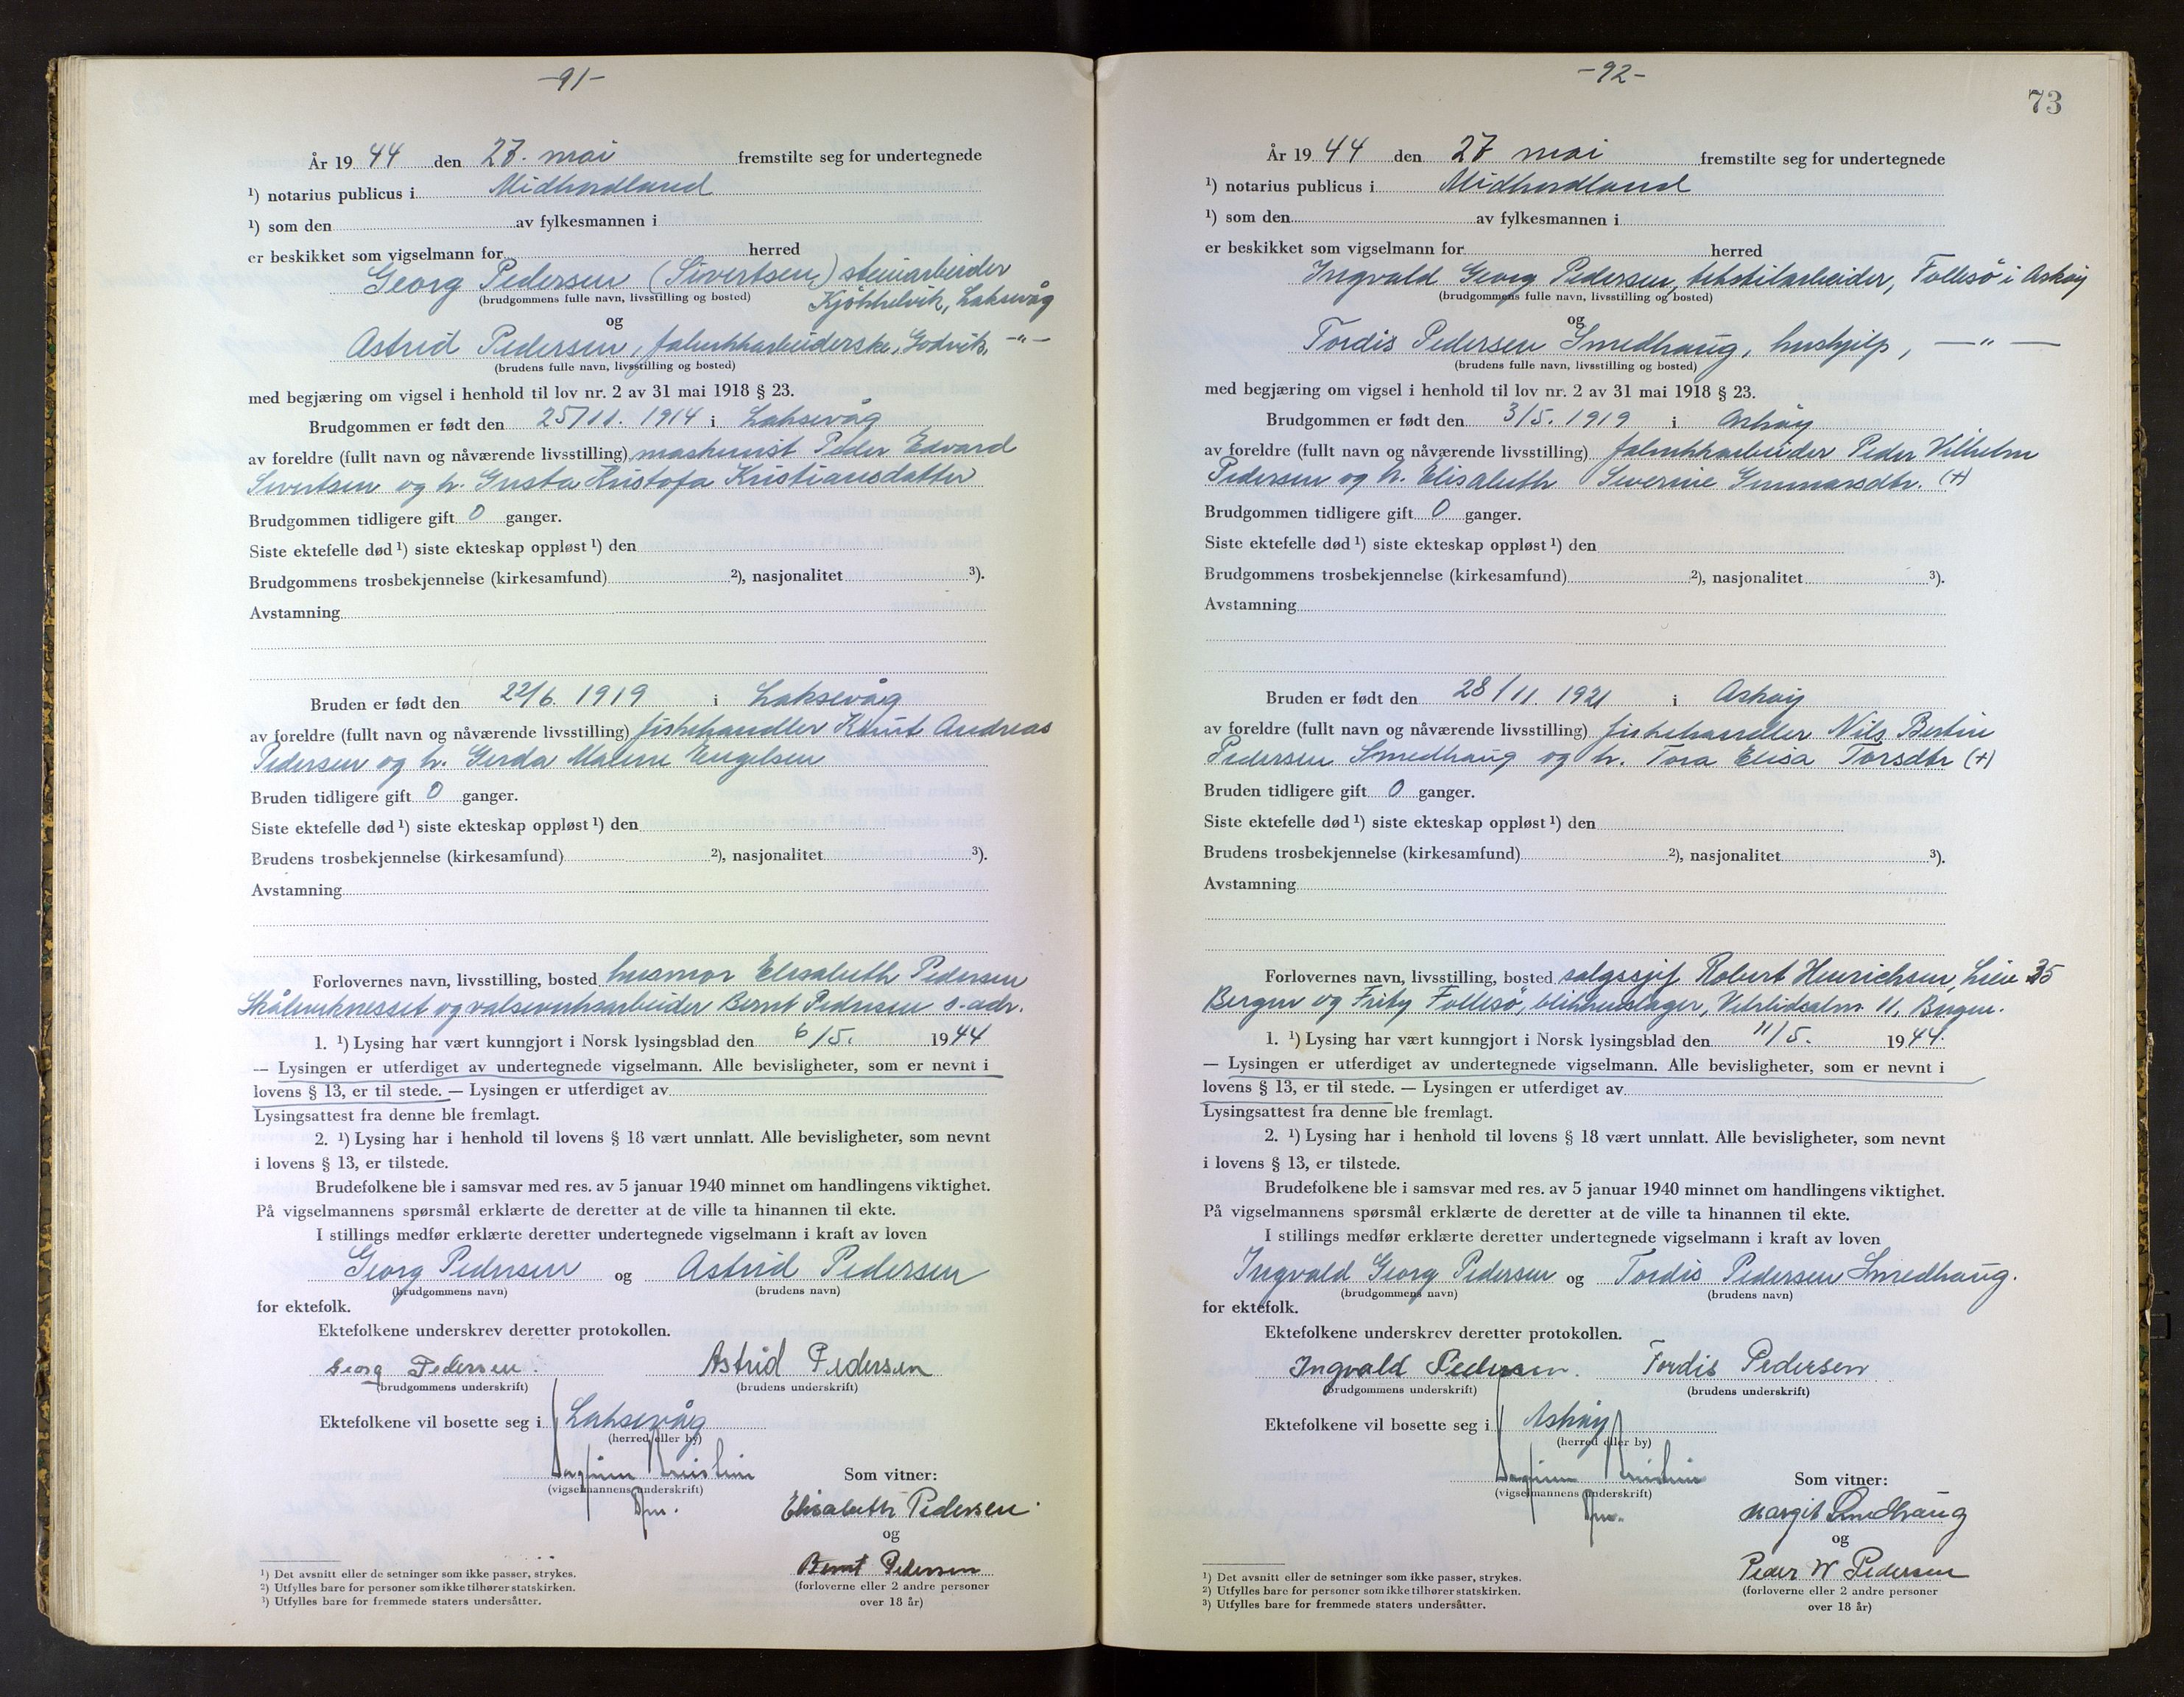 -91-
År 19 44 den 27. mai fremstilte seg for undertegnede
¹) notarius publicus i Midhordland
¹) som den av fylkesmannen i
er beskikket som vigselmann for herred
Georg Pedersen (Sivertsen) steinarbeider
(brudgommens fulle navn, livsstilling og bosted) Kjökkelvik, Laksevåg
og
Astrid Pedersen, fabrikkarbeiderske, Godvik, -"-
(brudens fulle navn, livsstilling og bosted)
med begjæring om vigsel i henhold til lov nr. 2 av 31 mai 1918 § 23.
Brudgommen er født den 25/11. 1914 i Laksevåg
av foreldre (fullt navn og nåværende livsstilling) maskinist Peder Edvard
Sivertsen og h. Gusta Kristofa Kristiansdatter
Brudgommen tidligere gift 0 ganger.
Siste ektefelle død ¹) siste ekteskap oppløst ¹) den
Brudgommens trosbekjennelse (kirkesamfund) ²), nasjonalitet ³).
Avstamning
Bruden er født den 22/6. 1919 i Laksevåg
av foreldre (fullt navn og nåværende livsstilling) fiskehandler Knut Andreas
Pedersen og h. Gerda Malene Engelsen
Bruden tidligere gift 0 ganger.
Siste ektefelle død ¹) siste ekteskap oppløst ¹) den
Brudens trosbekjennelse (kirkesamfund) ²), nasjonalitet ³).
Avstamning
Forlovernes navn, livsstilling, bosted husmor Elisabeth Pedersen
og valseverksarbeider Bernt Pedersen s. adr.
1. ¹) Lysing har vært kunngjort i Norsk lysingsblad den 6/5. 1944
— Lysingen er utferdiget av undertegnede vigselmann. Alle bevisligheter, som er nevnt i
lovens § 13, er til stede. — Lysingen er utferdiget av
Lysingsattest fra denne ble fremlagt.
2. ¹) Lysing har i henhold til lovens § 18 vært unnlatt. Alle bevisligheter, som nevnt
i lovens § 13, er tilstede.
Brudefolkene ble i samsvar med res. av 5 januar 1940 minnet om handlingens viktighet.
På vigselmannens spørsmål erklærte de deretter at de ville ta hinannen til ekte.
I stillings medfør erklærte deretter undertegnede vigselmann i kraft av loven
Georg Pedersen og Astrid Pedersen
(brudgommens navn) (brudens navn)
for ektefolk.
Ektefolkene underskrev deretter protokollen.
Georg Pedersen. Astrid Pedersen
(brudgommens underskrift) (brudens underskrift)
Ektefolkene vil bosette seg i Laksevåg
(herred eller by)
Som vitner:
(vigselmannens underskrift)
Elisabeth Pedersen.
og
Bernt Pedersen
(forloverne eller 2 andre personer
over 18 år)
¹) Det avsnitt eller de setninger som ikke passer, strykes.
²) Utfylles bare for personer som ikke tilhører statskirken.
³) Utfylles bare for fremmede staters undersåtter.
-92-
73
År 19 44 den 27 mai fremstilte seg for undertegnede
¹) notarius publicus i Midhordland
¹) som den av fylkesmannen i
er beskikket som vigselmann for herred
Ingvald Georg Pedersen, tekstilarbeider, Follesö i Askøy
(brudgommens fulle navn, livsstilling og bosted)
og
Tordis Pedersen Smedhaug, hushjelp, -"-
(brudens fulle navn, livsstilling og bosted)
med begjæring om vigsel i henhold til lov nr. 2 av 31 mai 1918 § 23.
Brudgommen er født den 3/5. 1919 i Askøy
av foreldre (fullt navn og nåværende livsstilling) fabrikkarbeider Peder Vilhelm
Pedersen og h. Elisabeth Severine Gunnarsdtr. (+)
Brudgommen tidligere gift 0 ganger.
Siste ektefelle død ¹) siste ekteskap oppløst ¹) den
Brudgommens trosbekjennelse (kirkesamfund) ²), nasjonalitet ³).
Avstamning
Bruden er født den 28/11. 1921 i Askøy
av foreldre (fullt navn og nåværende livsstilling) fiskehandler Nils Bertin
Pedersen Smedhaug og h. Tora Elisa Torsdtr (+)
Bruden tidligere gift 0 ganger.
Siste ektefelle død ¹) siste ekteskap oppløst ¹) den
Brudens trosbekjennelse (kirkesamfund) ²), nasjonalitet ³).
Avstamning
Forlovernes navn, livsstilling, bosted salgssjef Robert Hinrichsen, 35
Bergen og Follesö, blikkenslager, 11, Bergen.
1. ¹) Lysing har vært kunngjort i Norsk lysingsblad den 11/5. 1944.
— Lysingen er utferdiget av undertegnede vigselmann. Alle bevisligheter, som er nevnt i
lovens § 13, er til stede. — Lysingen er utferdiget av
Lysingsattest fra denne ble fremlagt.
2. ¹) Lysing har i henhold til lovens § 18 vært unnlatt. Alle bevisligheter, som nevnt
i lovens § 13, er tilstede.
Brudefolkene ble i samsvar med res. av 5 januar 1940 minnet om handlingens viktighet.
På vigselmannens spørsmål erklærte de deretter at de ville ta hinannen til ekte.
I stillings medfør erklærte deretter undertegnede vigselmann i kraft av loven
Ingvald Georg Pedersen og Tordis Pedersen Smedhaug.
(brudgommens navn) (brudens navn)
for ektefolk.
Ektefolkene underskrev deretter protokollen.
Ingvald Pedersen. Tordis Pedersen
(brudgommens underskrift) (brudens underskrift)
Ektefolkene vil bosette seg i Askøy
(herred eller by)
Som vitner:
(vigselmannens underskrift)
Margit Smedhaug
og
Peder W Pedersen
(forloverne eller 2 andre personer
over 18 år)
¹) Det avsnitt eller de setninger som ikke passer, strykes.
²) Utfylles bare for personer som ikke tilhører statskirken.
³) Utfylles bare for fremmede staters undersåtter.